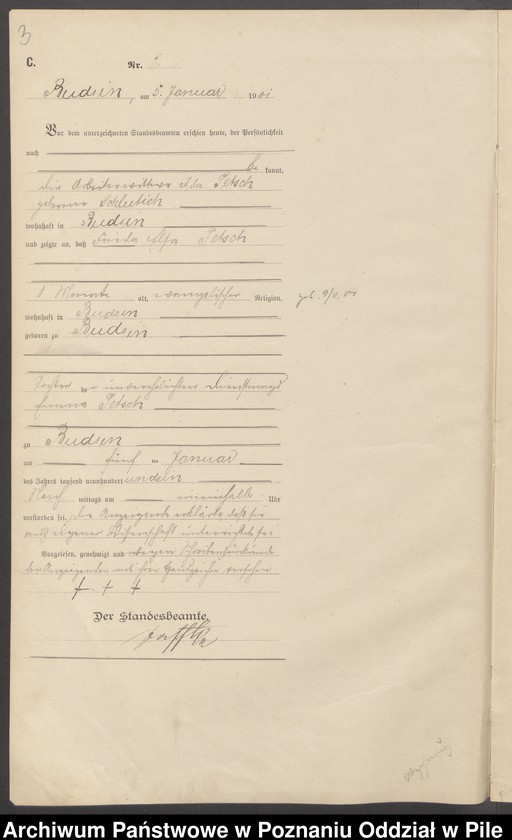 3
C.
Nr. 2
Budsin, am 5. Januar 1901
Vor dem unterzeichneten Standesbeamten erschien heute, der Persönlichkeit
nach
be kannt,
die Arbeiterwittwe Ida Petsch
geborene
wohnhaft in Budsin
und zeigte an, daß Frieda Petsch
1 Monat alt, evangelischer Religion,
wohnhaft in Budsin
geboren zu Budsin
Tochter der unverehelichten Dienstmagd
Emma Petsch
zu Budsin
am fünf ten Januar
des Jahres tausend neunhundert undein
Nach mittags um ein einhalb Uhr
verstorben sei. Die Anzeigende erklärte, daß sie
aus eigener Wissenschaft unterrichtet sei
Vorgelesen, genehmigt und wegen Schreibensunkunde
der Anzeigenden mit ihren Handzeichen versehen
+ + +
Der Standesbeamte.
Archiwum Państwowe w Poznaniu Oddział w Pile